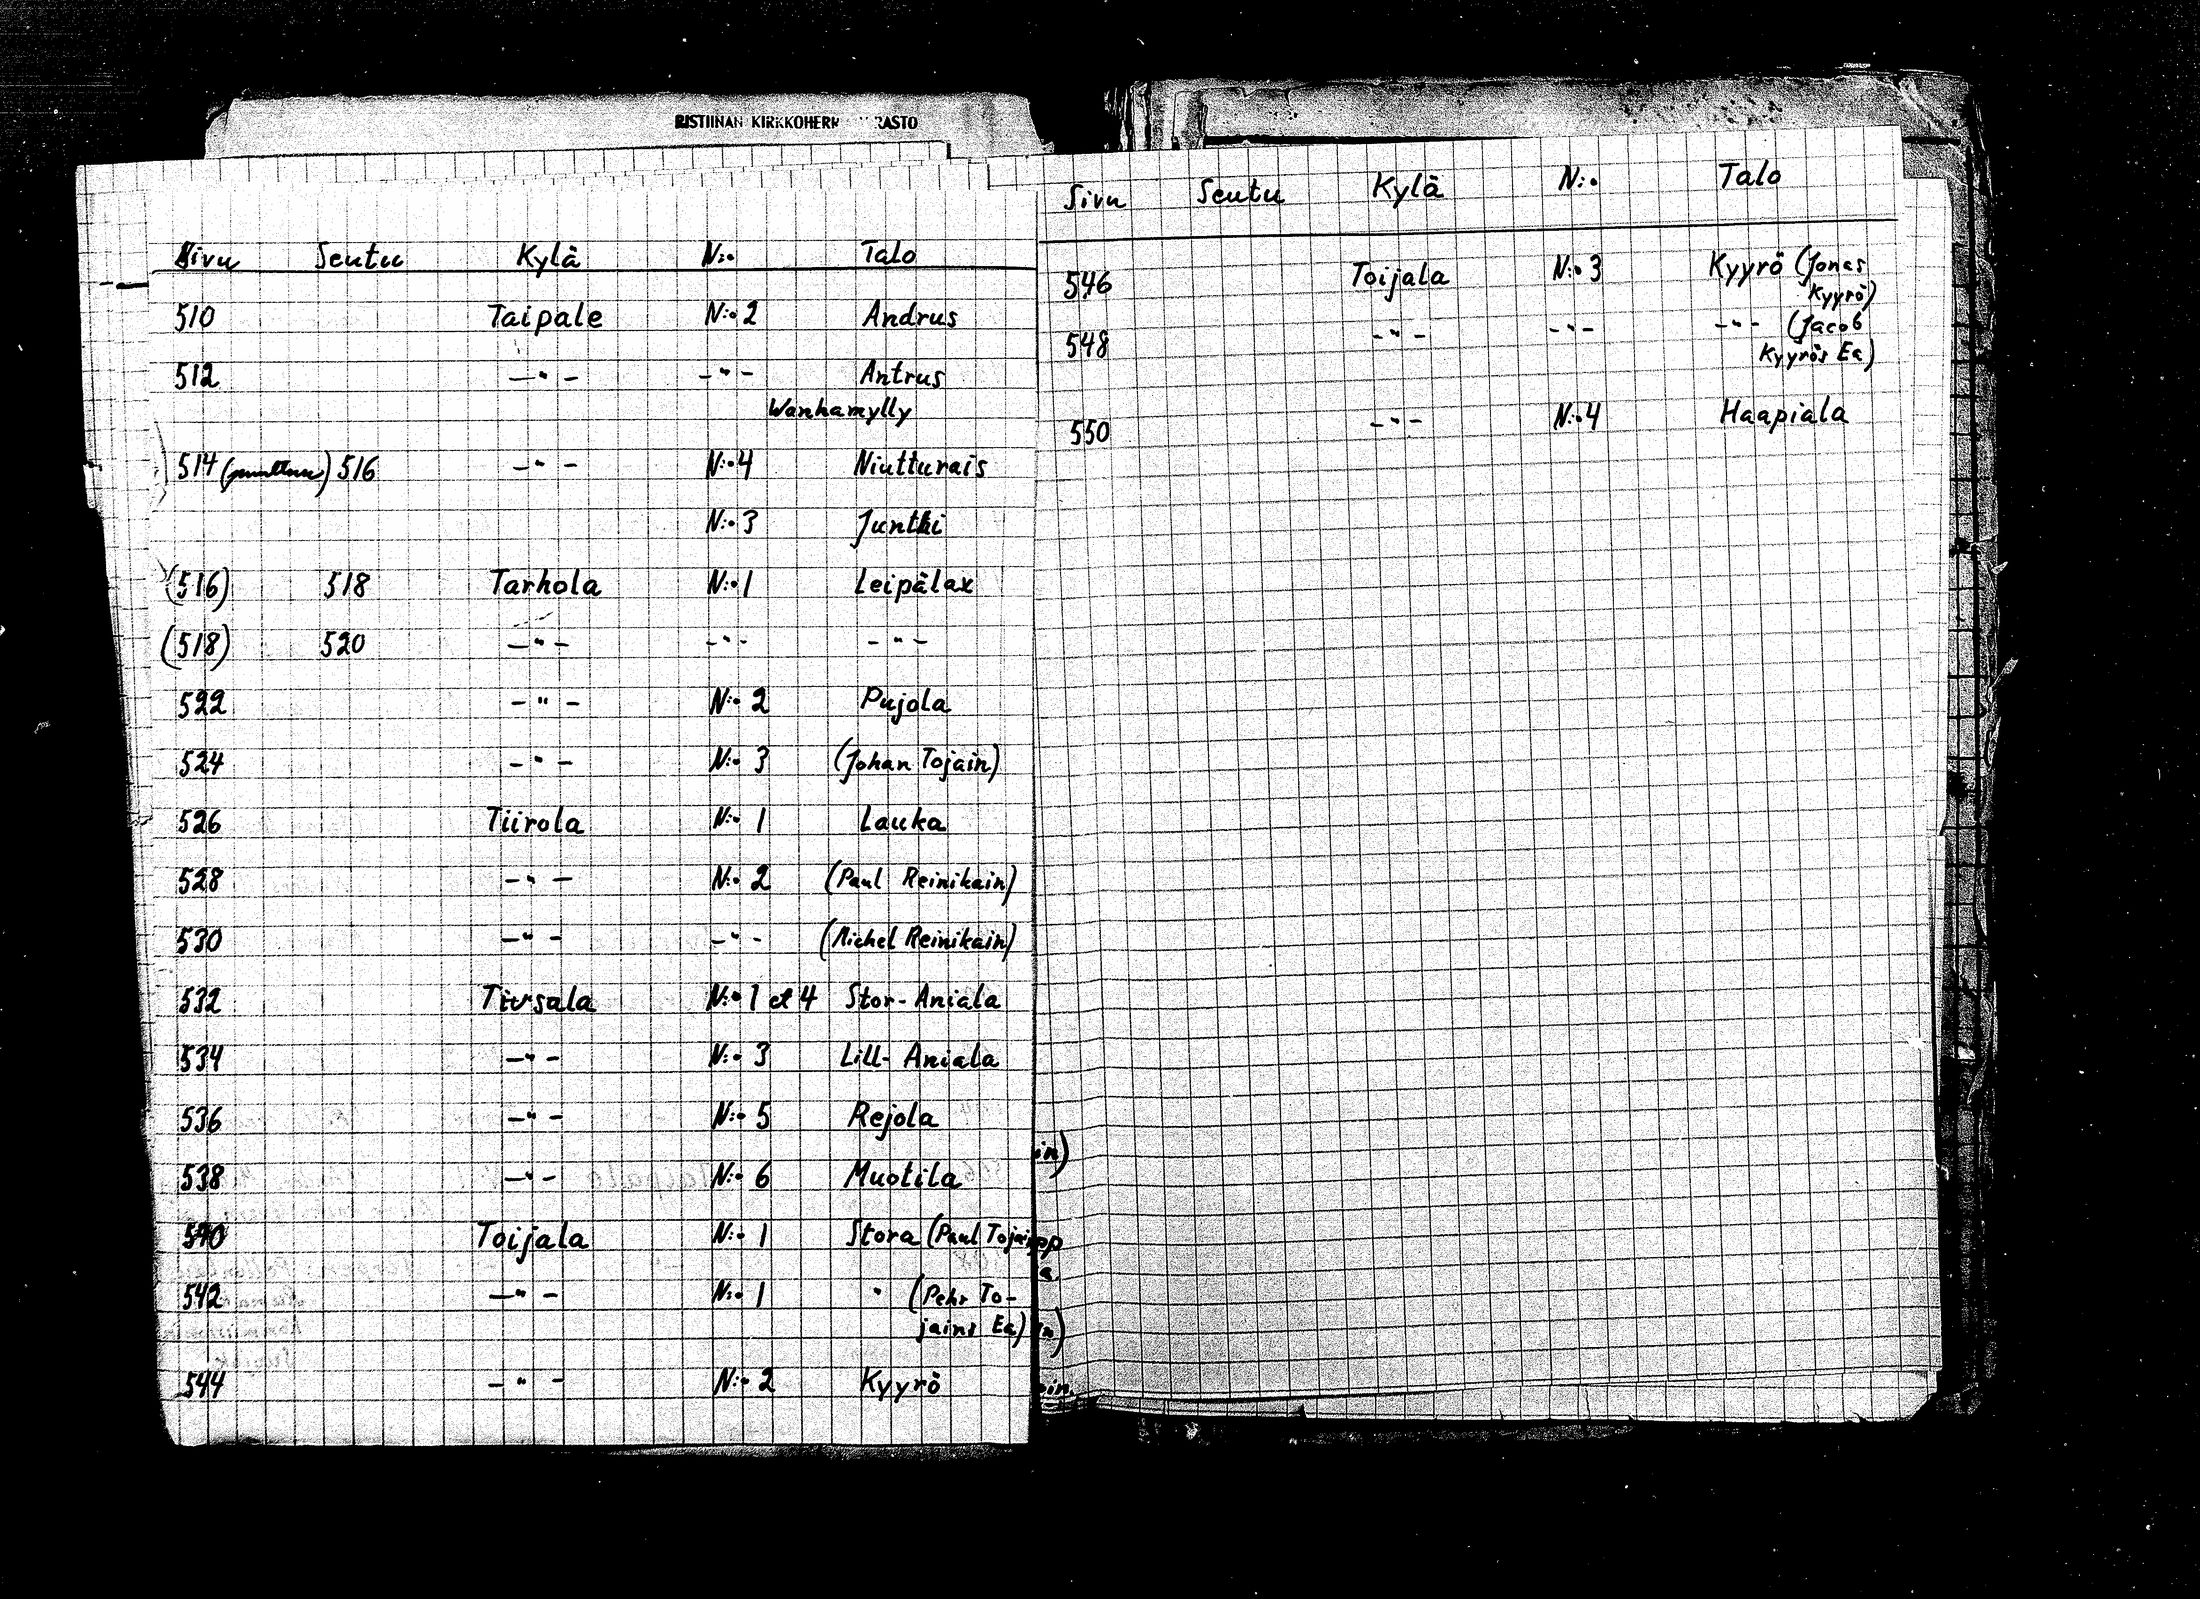 RISTIINAN KIRKKOHERR RASTO
Sivu Seutu Kylä N:o Talo
510 Taipale N:o 2 Andrus
512 —"— —"— Antrus
Wanhamylly
514 (puuttuu) 516 —"— N:o 4 Niutturais
N:o 3 Juntti
(516) 518 Tarhola N:o 1 Leipälax
(518) 520 —"— —"— —"—
522 —"— N:o 2 Pujola
524 —"— N:o 3 (Johan Tojain)
526 Tiirola N:o 1 Lauka
528 —"— N:o 2 (Paul Reinikain)
530 —"— —"— (Michel Reinikain)
532 Tiusala N:o 1 et 4 Stor-Aniala
534 —"— N:o 3 Lill-Aniala
536 —"— N:o 5 Rejola
538 —"— N:o 6 Muotila
540 Toijala N:o 1 Stora (Paul Tojain
542 —"— N:o 1 " (Pehr To-
jains Ea)
544 —"— N:o 2 Kyyrö
Sivu Seutu Kylä N:o Talo
546 Toijala N:o 3 Kyyrö (Jonas
Kyyrö)
548 —"— —"— —"— (Jacob
Kyyrös Ea)
550 —"— N:o 4 Haapiala